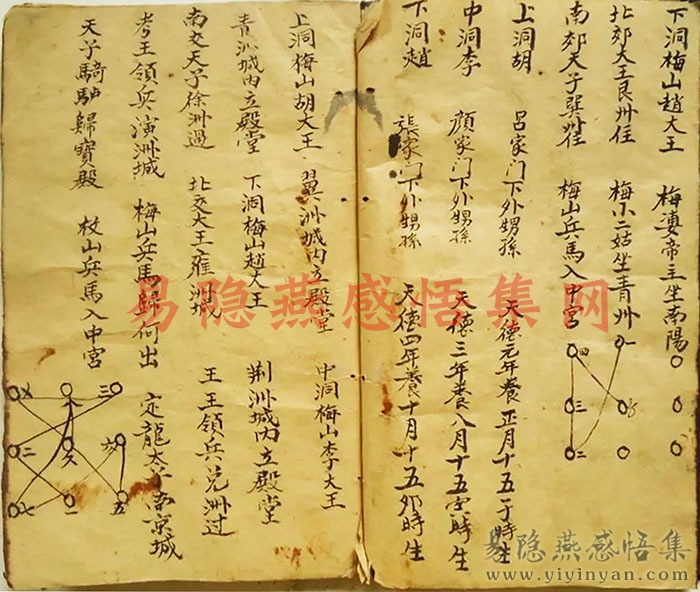 下洞梅山趙大王 梅婆帝主坐南陽
北郊大王艮州住 梅小二姑坐青州
南郊天子巽州住 梅山兵馬入中宮
上洞胡 呂家门下外甥孫 天德元年養正月十五子時生
中洞李 顏家门下外甥孫 天德三年養八月十五時生
下洞趙 張家门下外甥孫 天德四年養十月十五卯時生
一
四
三
二
上洞梅山胡大王 翼洲城内立殿堂 中洞梅山李大王
青洲城内立殿堂 下洞梅山趙大王 荆洲城内立殿堂
南交天子徐洲過 北交大王雍洲城 王王領兵兑洲过
考王領兵演洲城 梅山兵馬歸何出 定龍太子南京城
天子騎馿歸寶殿 枚山兵馬入中宮
三
六
二
五
一
七
易隐燕感悟集网
易隐燕感悟集
www.yiyinyan.com